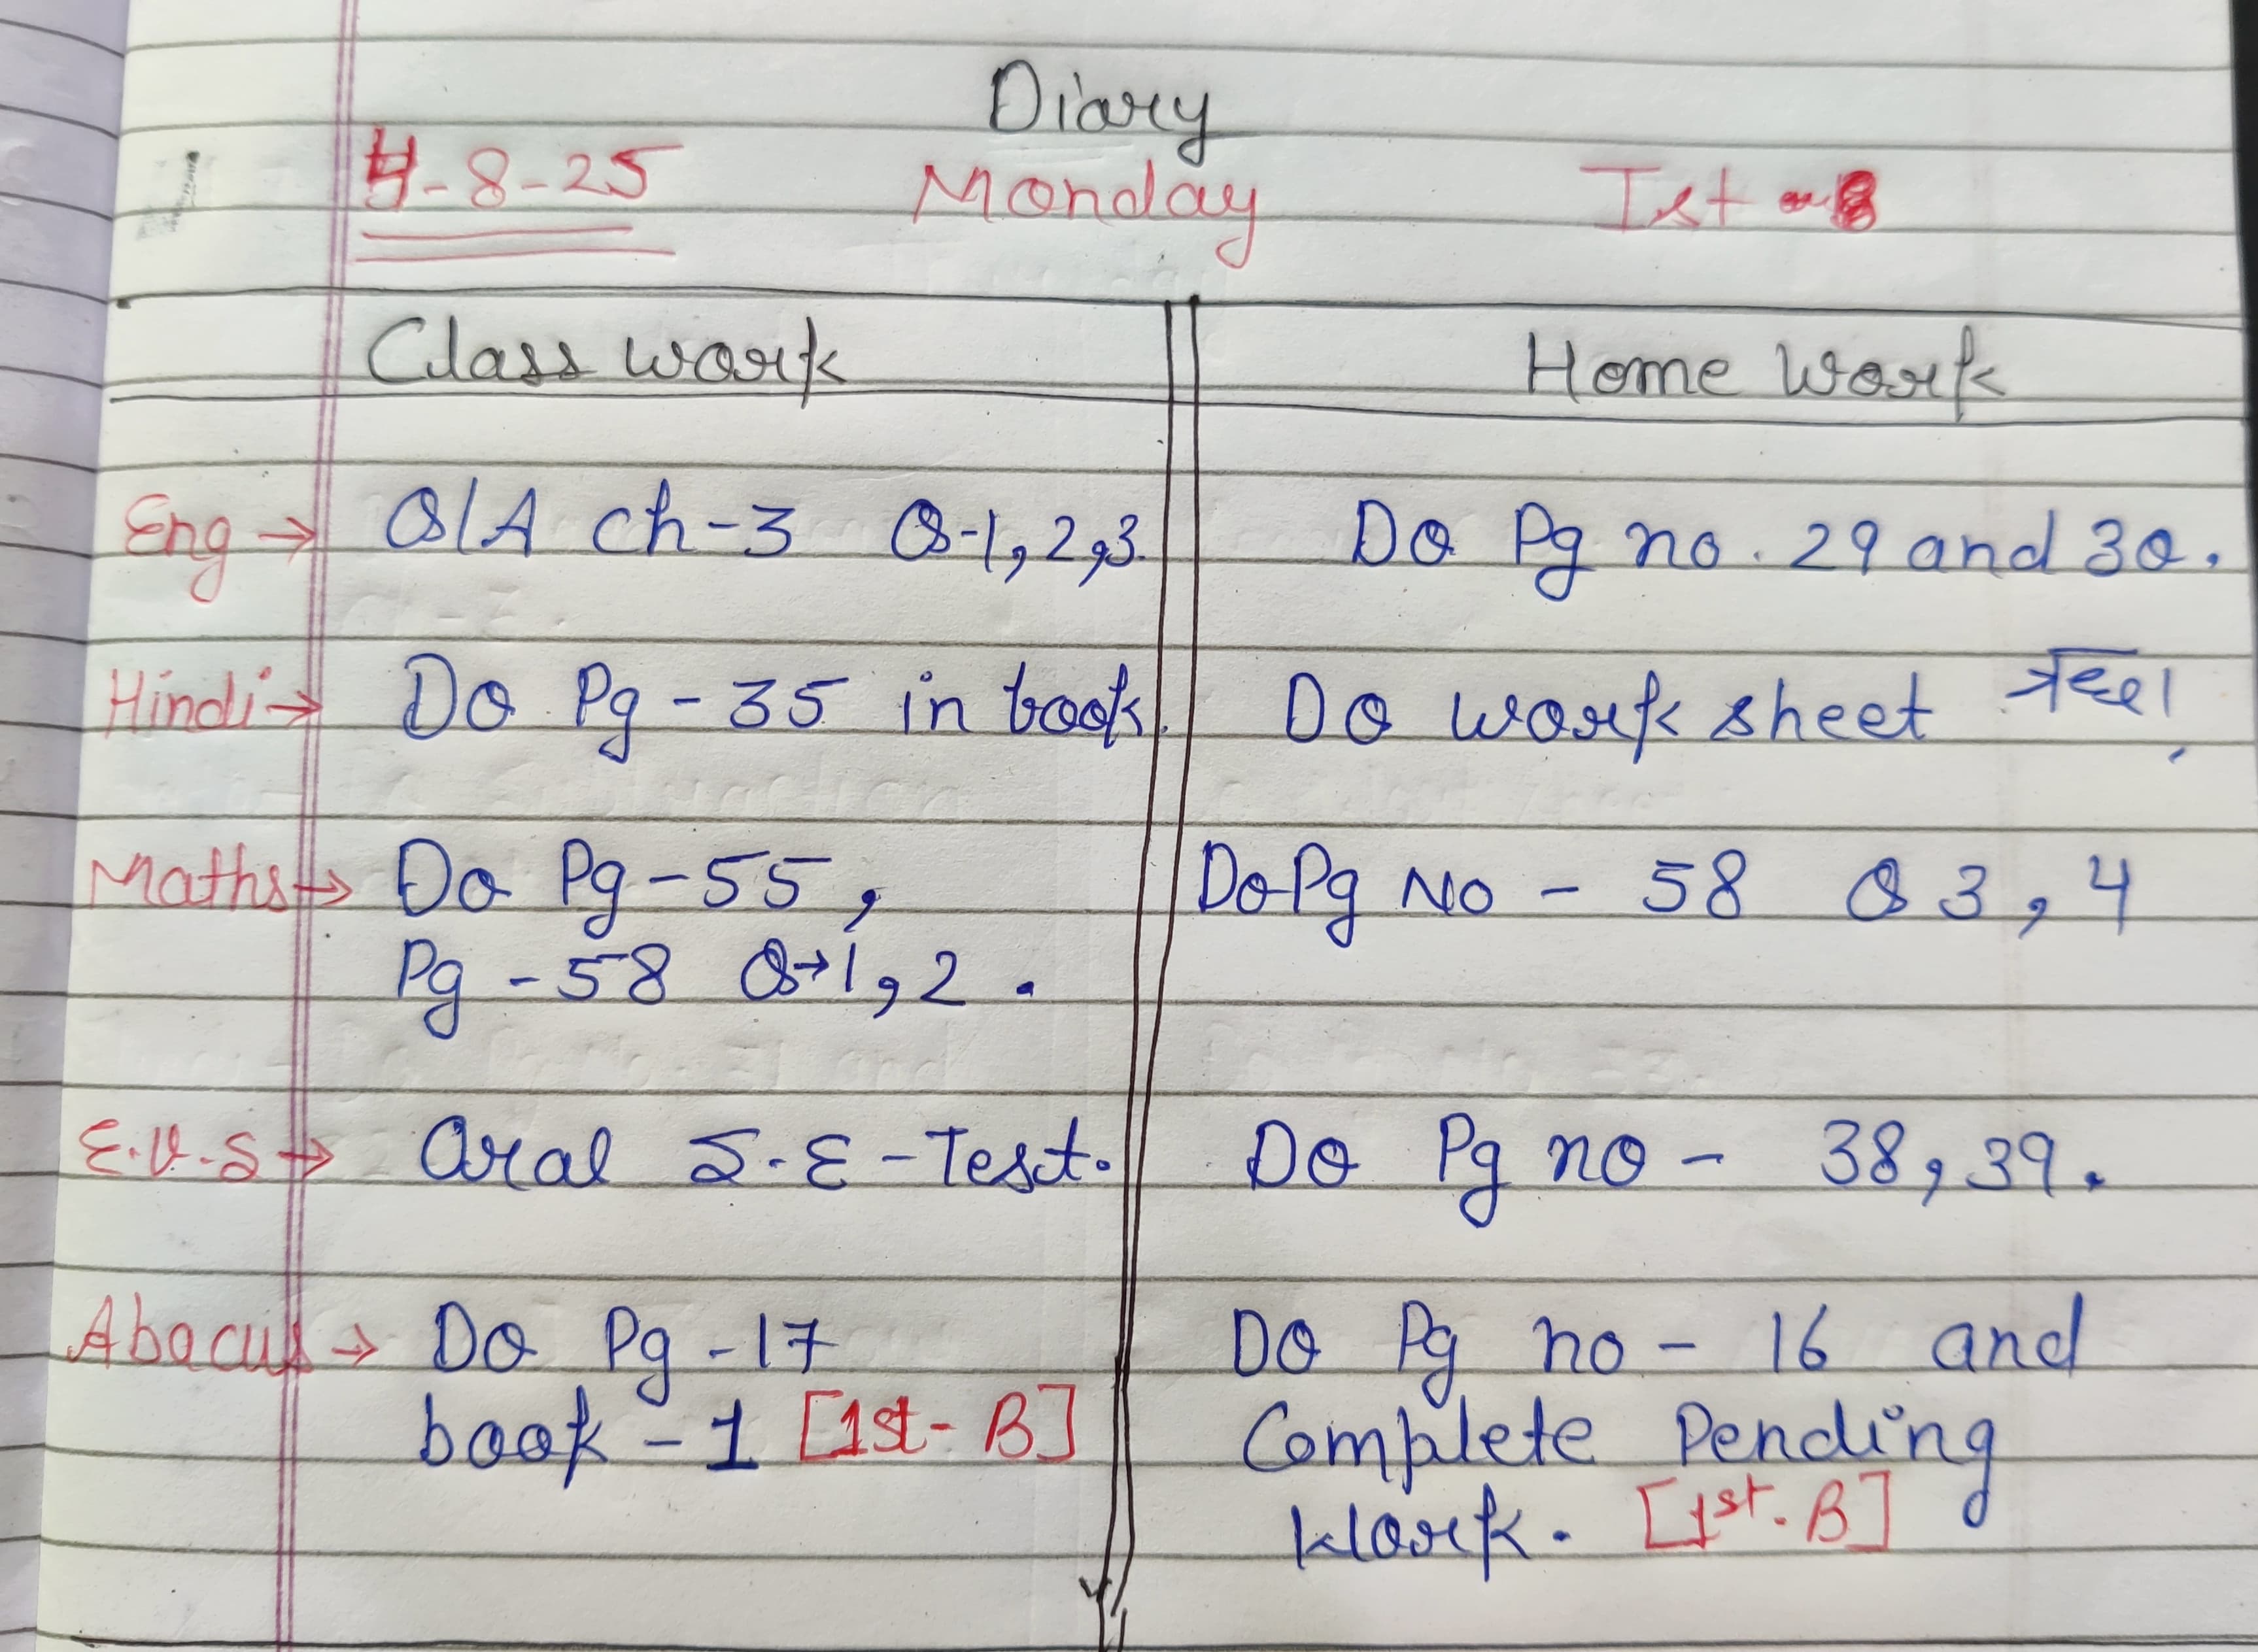 Diary
4-8-25 Monday Ist
Class work Home Work
Eng → Q/A Ch-3 Q-1,2,3. Do Pg no. 29 and 30.
Hindi → Do Pg - 35 in book. Do work sheet
Maths → Do Pg - 55, Do Pg No - 58 Q 3, 4
Pg - 58 Q→1,2.
E.V.S → Oral S.E-Test. Do Pg no - 38, 39.
Abacus → Do Pg - 17 Do Pg no - 16 and
book - 1 [1st- B] Complete Pending
Work. [1st- B]